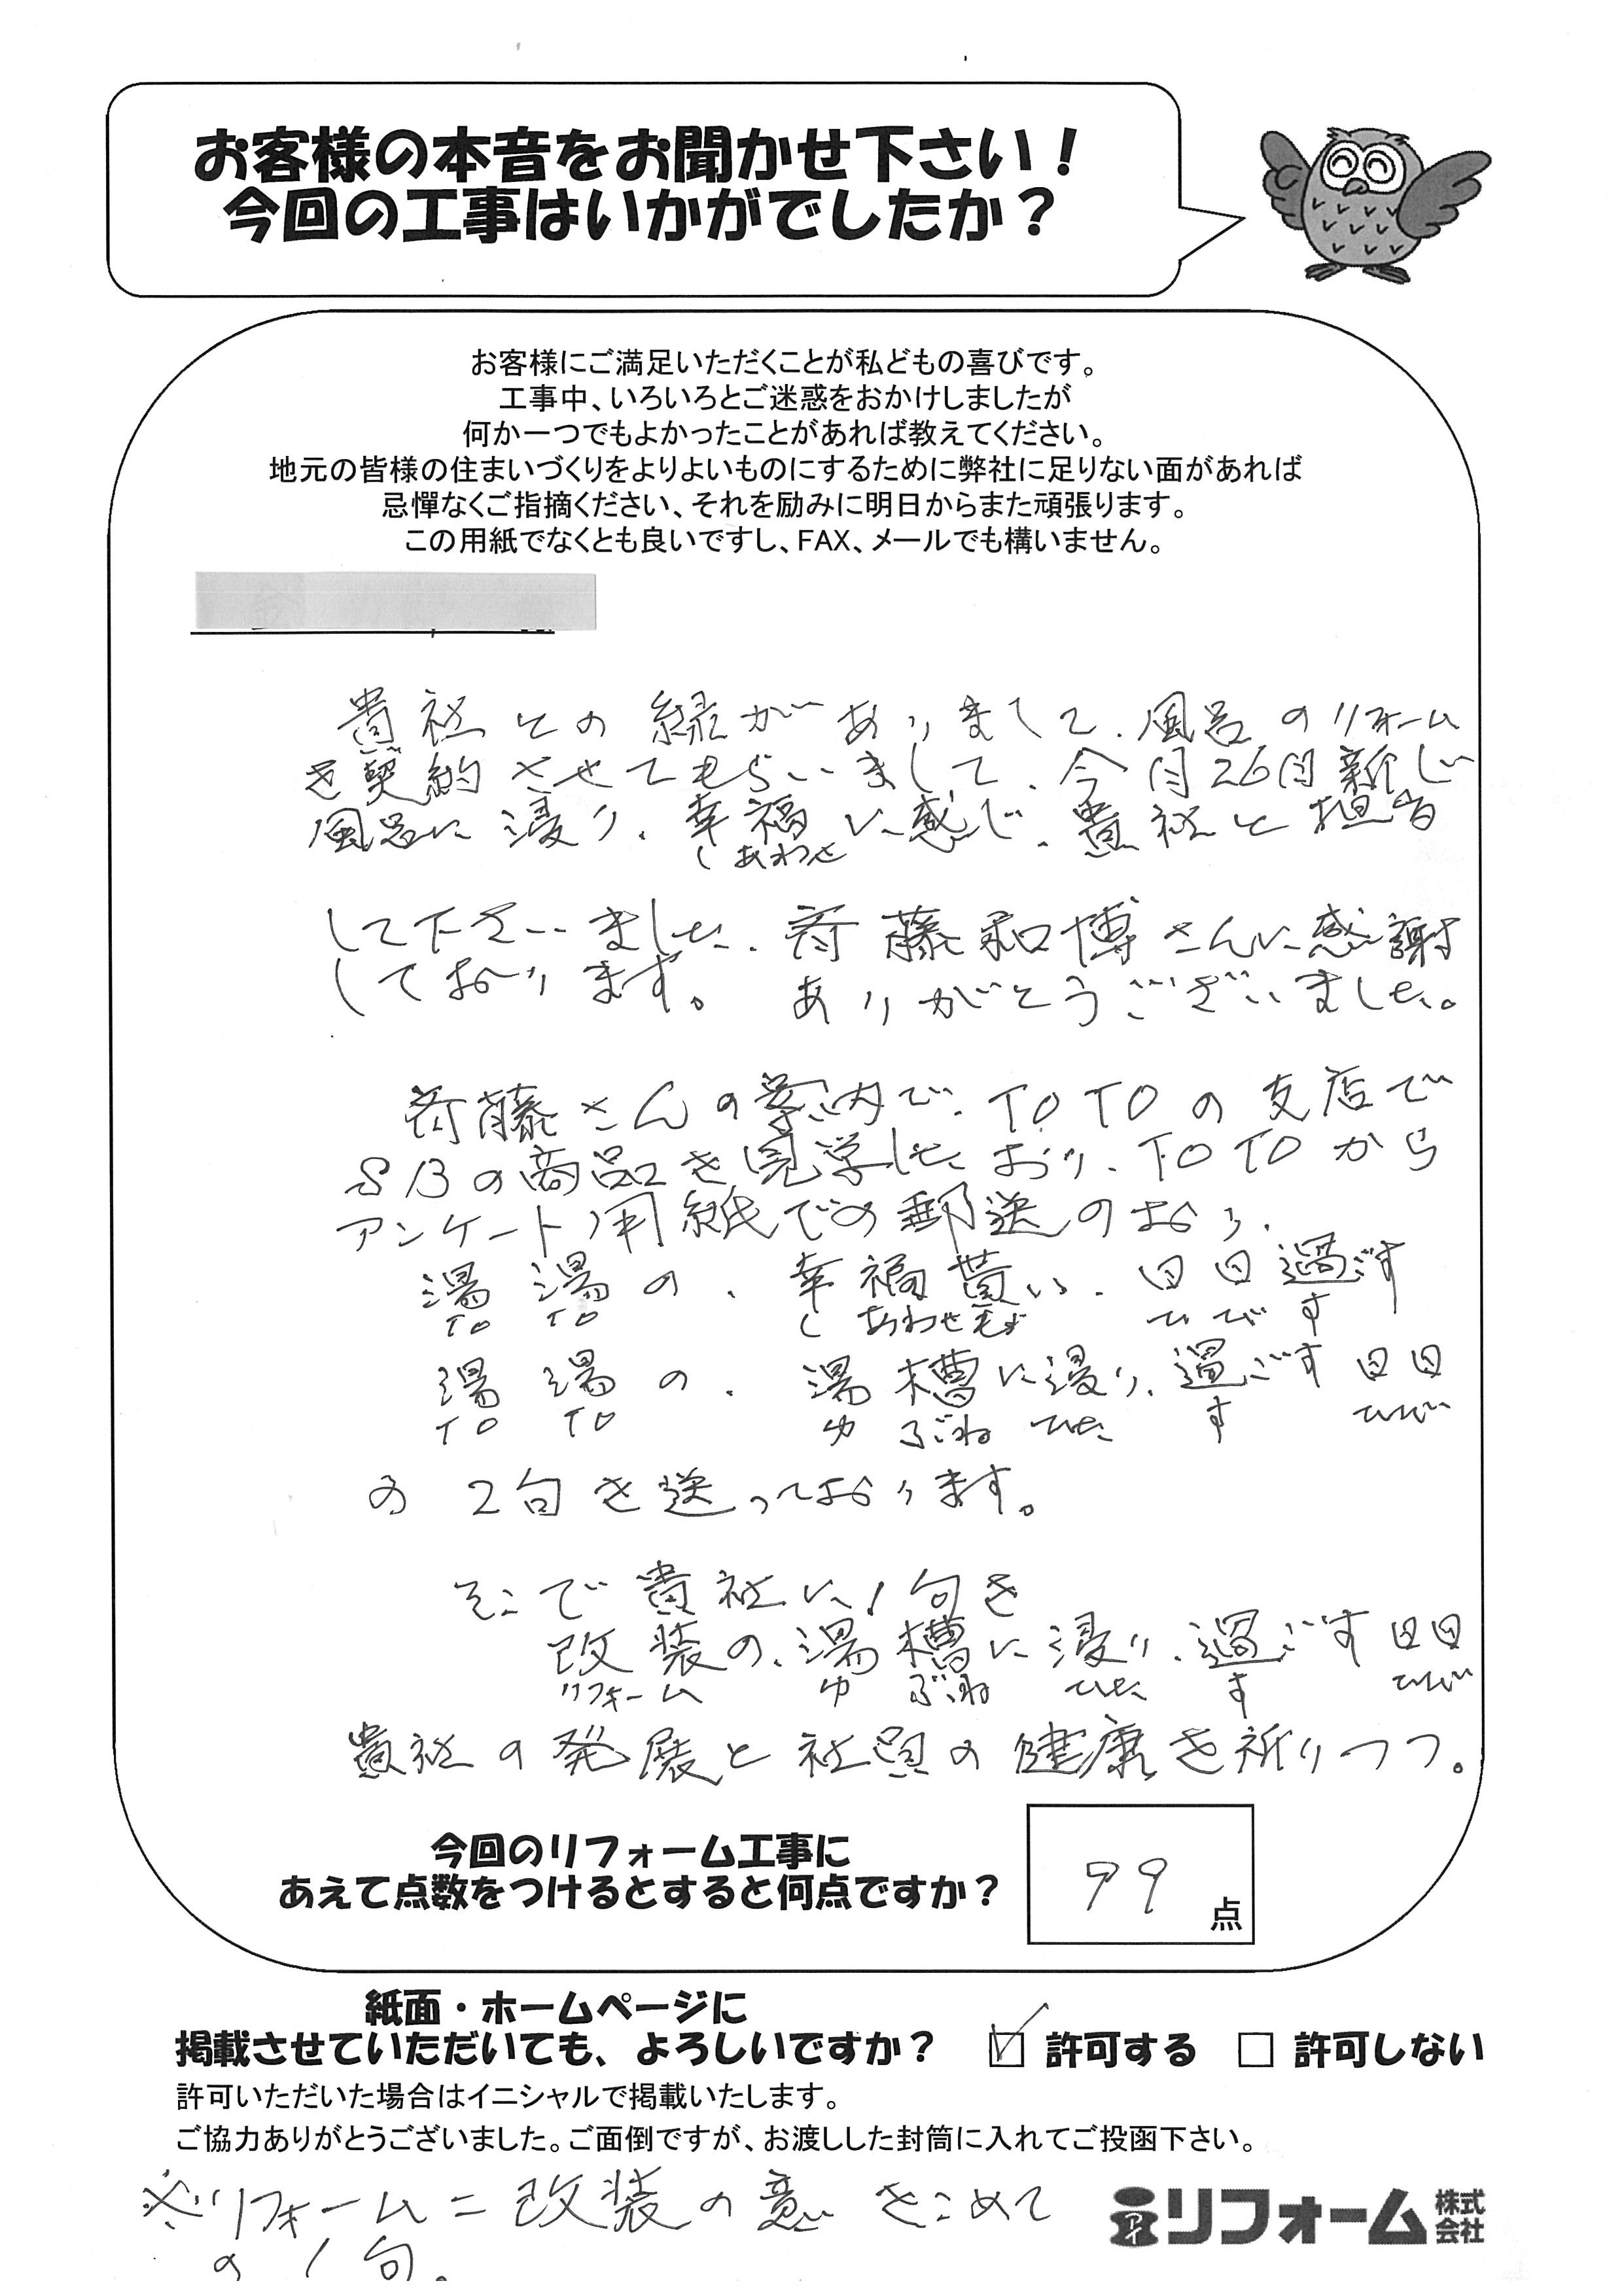 お客様の本音をお聞かせ下さい！
今回の工事はいかがでしたか？
お客様にご満足いただくことが私どもの喜びです。
工事中、いろいろとご迷惑をおかけしましたが
何か一つでもよかったことがあれば教えてください。
地元の皆様の住まいづくりをよりよいものにするために弊社に足りない面があれば
忌憚なくご指摘ください、それを励みに明日からまた頑張ります。
この用紙でなくとも良いですし、FAX、メールでも構いません。
貴社との縁がありまして、風呂のリフォーム
を契約させてもらいまして、今月26日新しい
風呂に浸り、幸福に感じ、貴社と担当
しあわせ
して下さいました、斉藤和博さんに感謝
しております。 ありがとうございました。
斉藤さんの案内で、TOTOの支店で
SBの商品を見学したおり、TOTOから
アンケート用紙での郵送のおり、
湯湯の、幸福貰い、日日過ごす
TO TO しあわせ もら ひび す
湯湯の、湯槽に浸り、過ごす日日
TO TO ゆ ぶね ひた す ひび
の 2句を送っております。
そこで貴社に1句を
改装の、湯槽に浸り、過ごす日日
リフォーム ゆ ぶね ひた す ひび
貴社の発展と社員の健康を祈りつつ。
今回のリフォーム工事に
あえて点数をつけるとすると何点ですか？
99点
紙面・ホームページに
掲載させていただいても、よろしいですか？ ☑ 許可する □ 許可しない
許可いただいた場合はイニシャルで掲載いたします。
ご協力ありがとうございました。ご面倒ですが、お渡しした封筒に入れてご投函下さい。
※リフォーム＝改装の意をこめて
の1句。
リフォーム株式会社